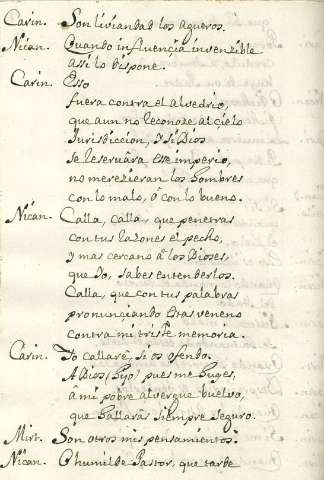 Carin. Son liviandad los agueros.
Nican. Quando influencia invenzible
assi lo dispone.
Carin. Esso
fuera contra el alvedrio,
que aun no reconoze al çielo
Jurisdiccion, y si Dios
se reservâra este imperio,
no merezieran los hombres
con lo malo, ô con lo bueno.
Nican. Calla, calla, que penetras
con tus razones el pecho,
y mas cercano a los Dioses,
que yo, sabes entenderlos.
Calla, que con tus palabras
pronunçiando estas veneno
contra mi triste memoria.
Carin. Yo callarè, si os ofendo.
A Dios (hijo) pues me huyes,
a mi pobre alvergue buelvo,
que hallaràs siempre seguro.
Mirt. Son otros mis pensamientos.
Nican. O humilde Pastor, que tarde